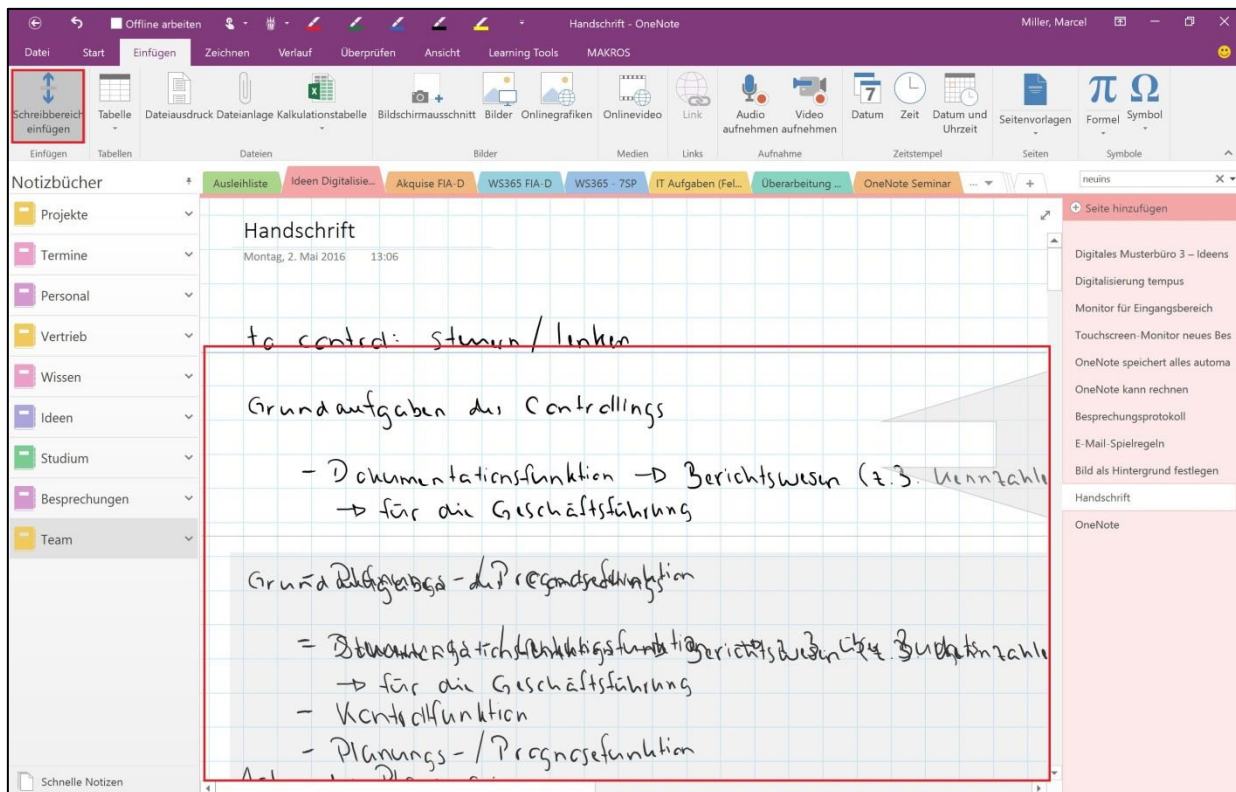 Offline arbeiten
Handschrift - OneNote
Miller, Marcel
Datei Start Einfügen Zeichnen Verlauf Überprüfen Ansicht Learning Tools MAKROS
Schreibbereich einfügen
Tabelle
Dateiausdruck Dateianlage Kalkulationstabelle
Bildschirmausschnitt Bilder Onlinegrafiken
Onlinevideo
Link
Audio aufnehmen
Video aufnehmen
Datum Zeit Datum und Uhrzeit
Seitenvorlagen
Formel Symbol
Einfügen Tabellen Dateien Bilder Medien Links Aufnahme Zeitstempel Seiten Symbole
Notizbücher
Projekte
Termine
Personal
Vertrieb
Wissen
Ideen
Studium
Besprechungen
Team
Schnelle Notizen
Ausleihliste Ideen Digitalisie... Akquise FIA-D WS365 FIA-D WS365 - 7SP IT Aufgaben (Fel... Überarbeitung ... OneNote Seminar ...
neuins
Handschrift
Montag, 2. Mai 2016 13:06
to control: steuern / lenken
Grundaufgaben des Controllings
- Dokumentationsfunktion → Berichtswesen (z.B. Kennzahle
→ für die Geschäftsführung
→ für die Geschäftsführung
- Kontrollfunktion
- Planungs-/Prognosefunktion
Seite hinzufügen
Digitales Musterbüro 3 – Ideens
Digitalisierung tempus
Monitor für Eingangsbereich
Touchscreen-Monitor neues Bes
OneNote speichert alles automa
OneNote kann rechnen
Besprechungsprotokoll
E-Mail-Spielregeln
Bild als Hintergrund festlegen
Handschrift
OneNote